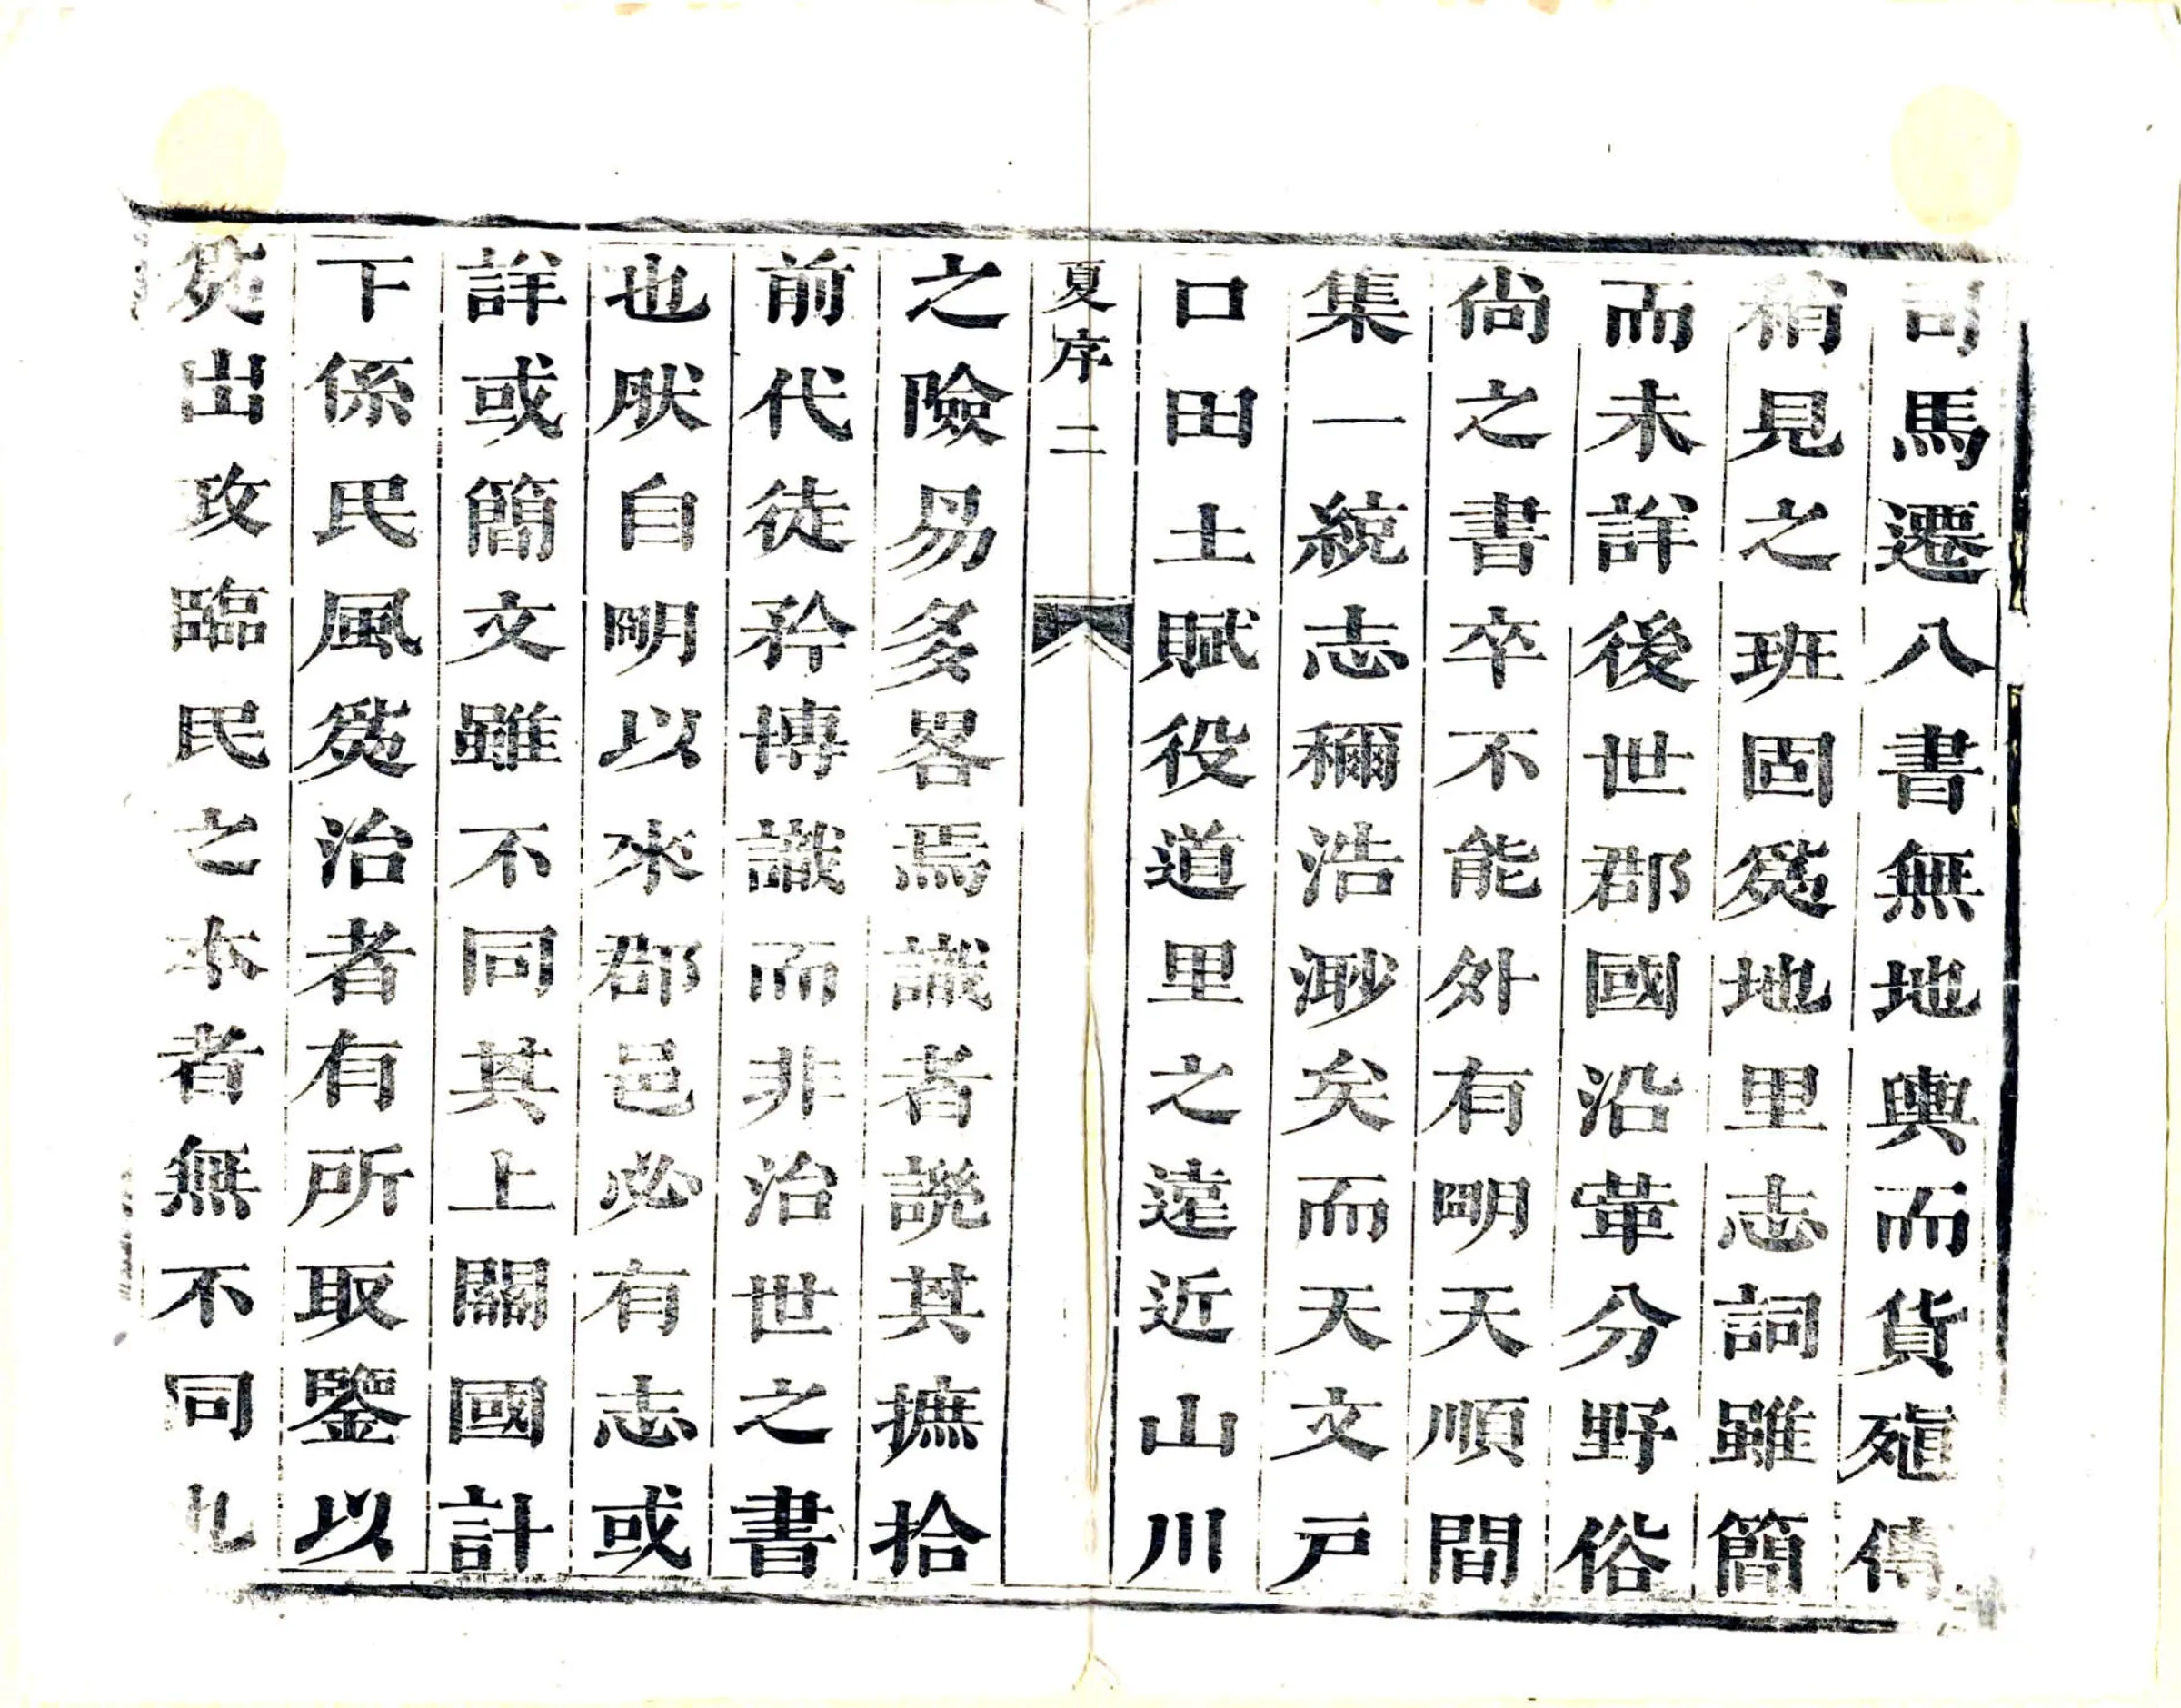 司馬遷八書無地輿而貨殖傳
稍見之班固爰地里志詞雖簡
而未詳後世郡國沿革分野俗
尙之書卒不能外有明天順間
集一統志穪浩渺矣而天文戸
口田土賦役道里之遠近山川
夏序 二
之險易多畧焉識者譏其摭拾
前代徒矜博識而非治世之書
也肰自明以來郡邑必有志或
詳或簡文雖不同其上關國計
下係民風爰治者有所取鑒以
爰出攻臨民之本者無不同也